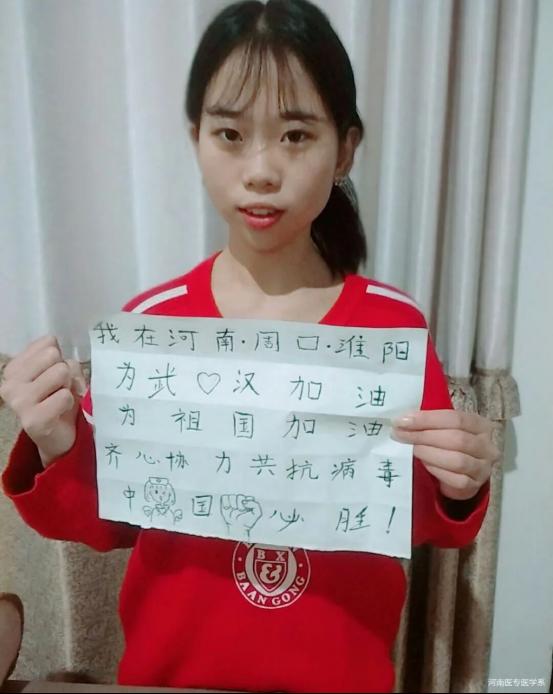 我在河南·周口·淮阳
为武♡汉加油
为祖国加油
齐心协力共抗病毒
中国必胜！
BX
&
BAAN GONG
河南医专医学系